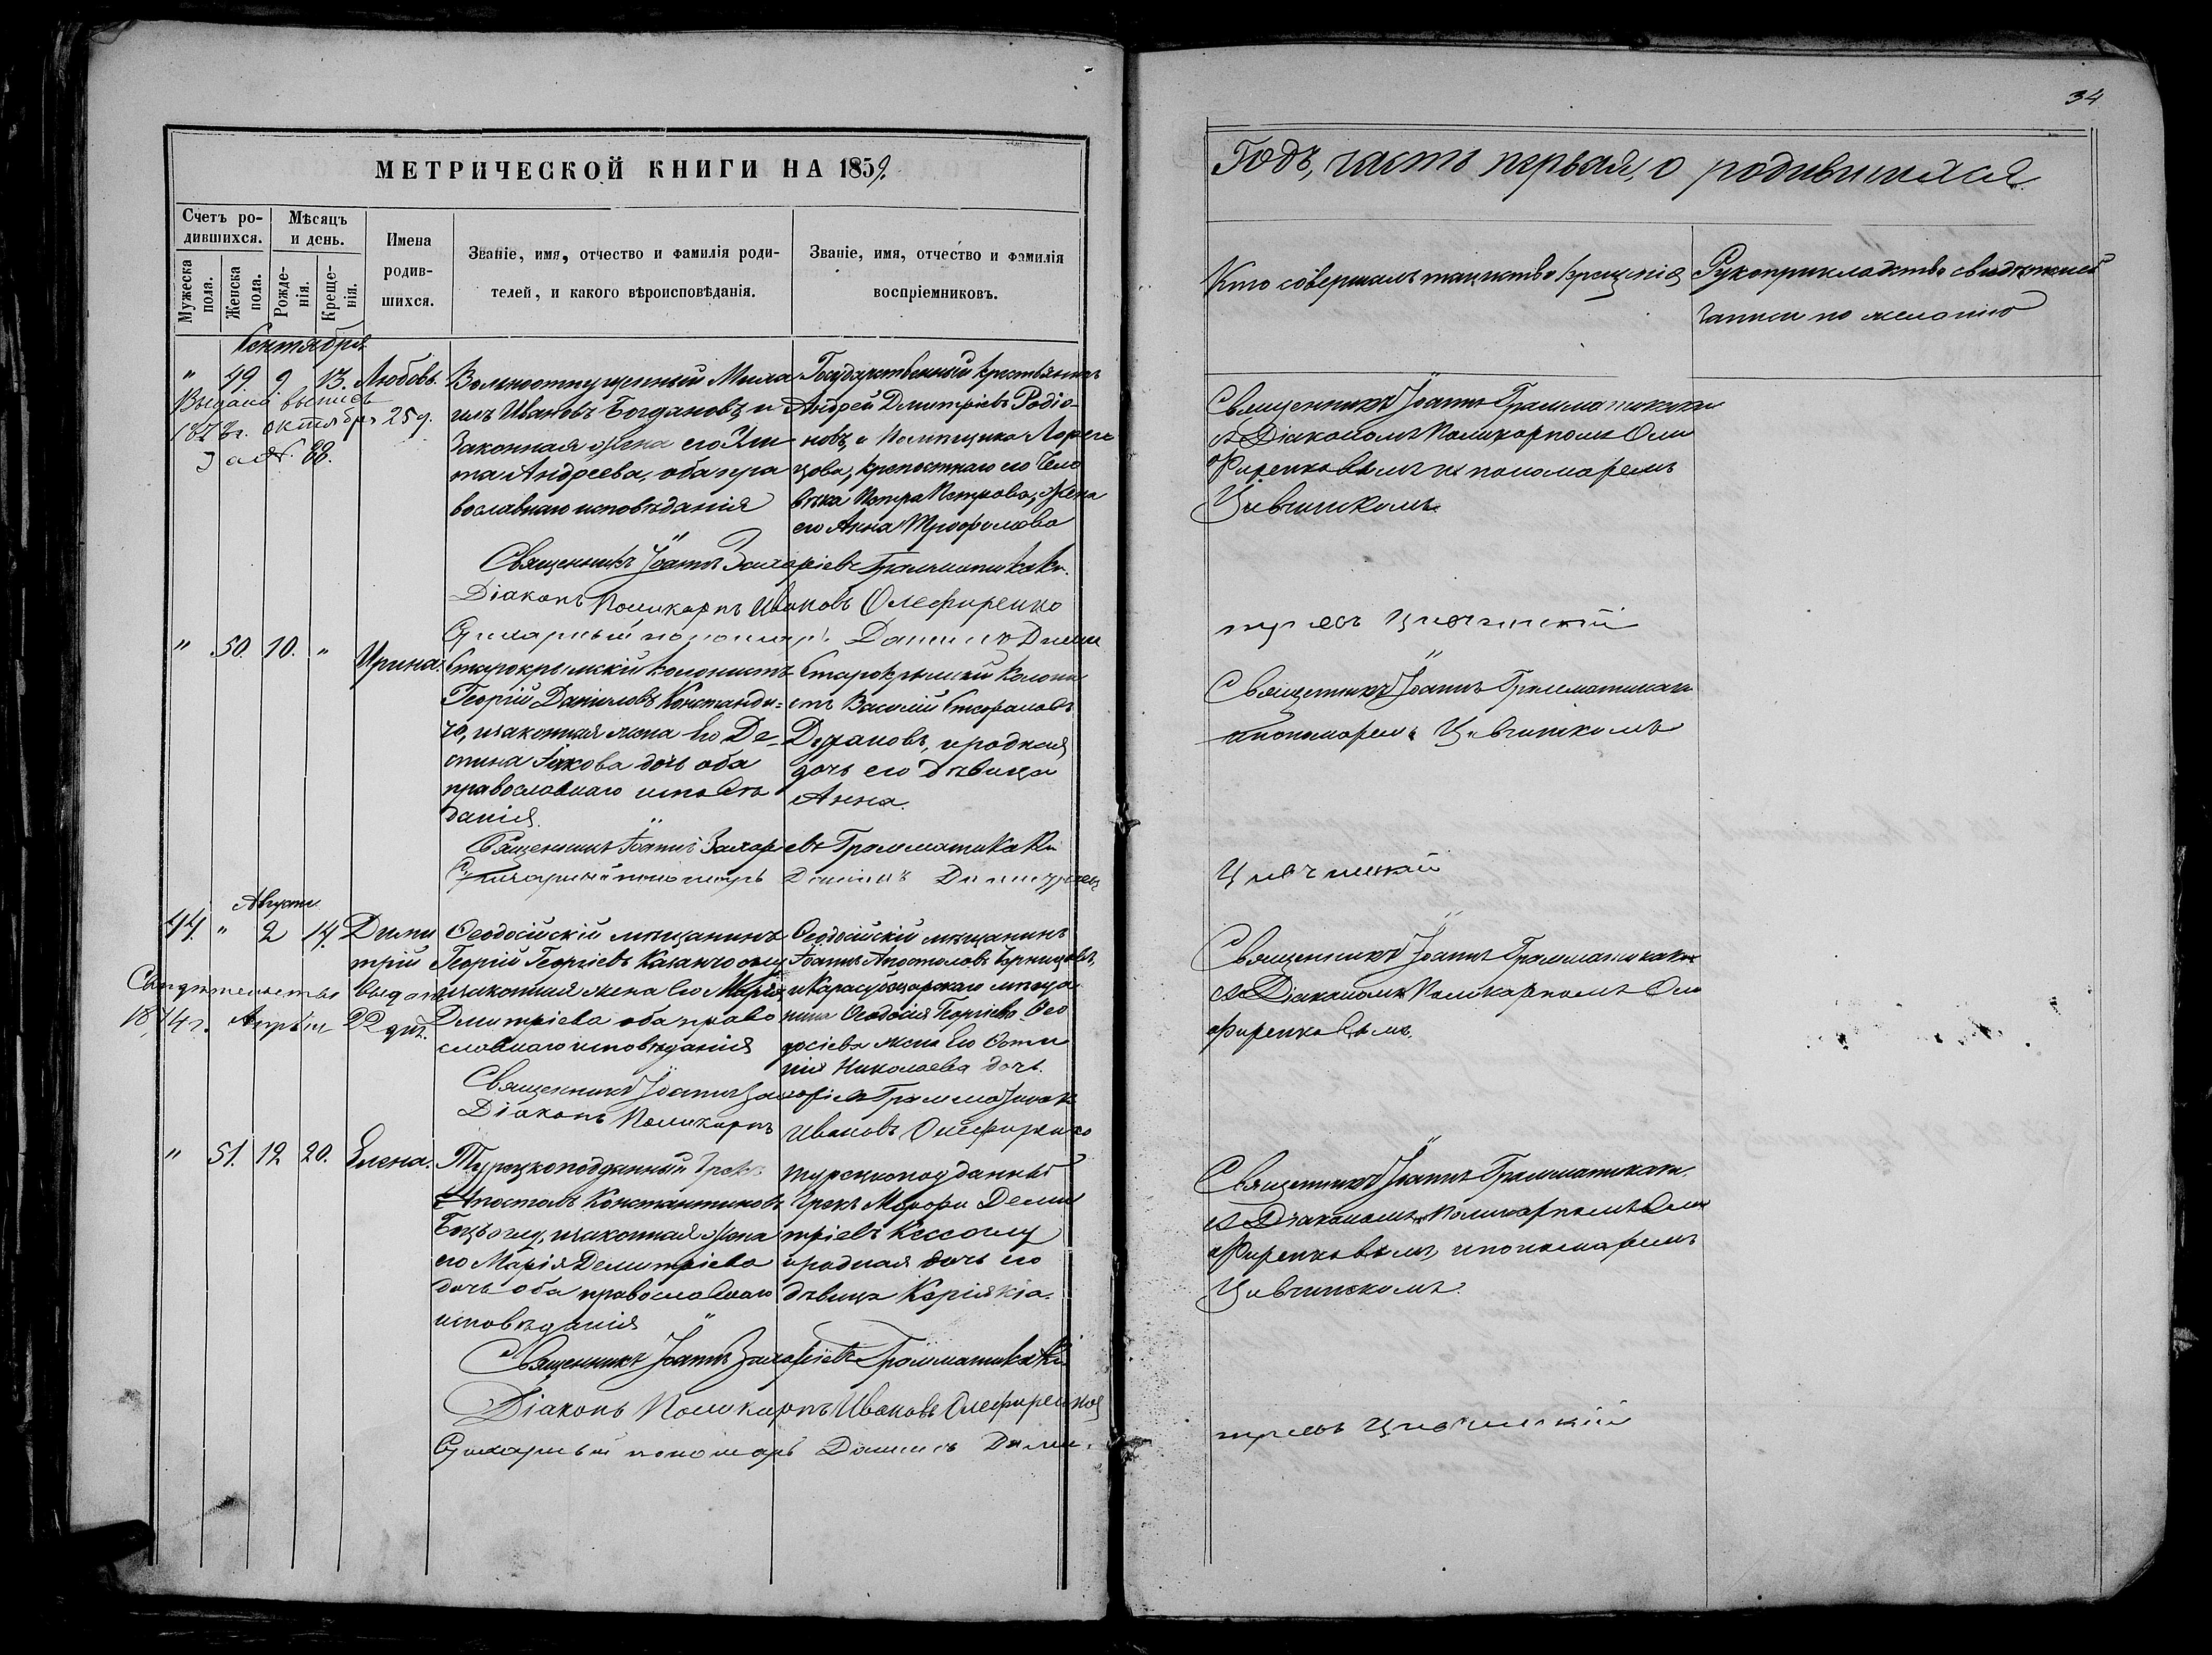 34
МЕТРИЧЕСКОЙ КНИГИ НА 1859.
Годъ, часть первая, о родившихся.
Счетъ ро-
дившихся.
Мѣсяцъ
и день.
Мужеска
пола.
Женска
пола.
Рожде-
нія.
Креще-
нія.
Имена
родив-
шихся.
Званіе, имя, отчество и фамилія роди-
телей, и какого вѣроисповѣданія.
Званіе, имя, отчество и фамилія
воспріемниковъ.
Кто совершалъ таинство крещенія
Рукоприкладство свидѣтелей
записи по желанію
Сентября
" 49. 9 13. Любовь.
Выдана выпись
октября 25 д.
за № 88.
Вольноотпущенный Миха
илъ Ивановъ Богдановъ и
законная жена его
Андреева, оба пра
вославнаго исповѣданія
Государственный крестьянинъ
Андрей Дмитріевъ Родіо-
новъ, и помѣщика
крепостнаго его чело
вѣка Петра Петрова, жена
его Анна Трофимова
Священникъ Іоаннъ Грамматикаки
съ Діакономъ Поликарпомъ Оле
фиренковымъ и пономаремъ
Цивчинскимъ.
Священникъ Іоаннъ Захаріевъ Грамматикаки.
Діаконъ Поликарпъ Ивановъ Олефиренко
пономарь Даниилъ Дими
тріевъ Цивчинскій
" 50. 10. " Ирина.
Старокрымскій колонистъ
Георгій Даниловъ Константи-
законная жена его Де-
спина Іакова дочь оба
православнаго исповѣ
данія.
Старокрымскій колони
стъ Василій Стефановъ
и родная
дочь его дѣвица
Анна.
Священникъ Іоаннъ Грамматикаки
и пономаремъ Цивчинскимъ
Священникъ Іоаннъ Захаріевъ Грамматикаки
пономарь Даниилъ Димитріевъ
Цивчинскій
Августа
44. " 2 14. Дими
трій
Свидѣтельство выдано
1874 г. Апрѣля 22 дня.
Ѳеодосійскій мѣщанинъ
Георгій Георгіевъ
и законная жена его Марія
Дмитріева оба право
славнаго исповѣданія
Ѳеодосійскій мѣщанинъ
Іоаннъ Апостоловъ
и Карасубазарскаго мѣща
нина Ѳеодосія Георгіева Ѳео
досіева жена его
Николаева дочь.
Священникъ Іоаннъ Грамматикаки
съ Діакономъ Поликарпомъ Оле
фиренковымъ.
Священникъ Іоаннъ Захаріевъ Грамматикаки
Діаконъ Поликарпъ Ивановъ Олефиренко
" 51. 12 20. Елена.
Турецкоподданный Грекъ
Апостолъ Константиновъ
и законная жена
его Марія Демитріева
дочь оба православнаго
исповѣданія
Турецкоподданный
Грекъ Деми
тріевъ
и родная дочь его
дѣвица
Священникъ Іоаннъ Грамматикаки.
съ Діакономъ Поликарпомъ Оле
фиренковымъ, и пономаремъ
Цивчинскимъ.
Священникъ Іоаннъ Захаріевъ Грамматикаки
Діаконъ Поликарпъ Ивановъ Олефиренко
пономарь Даниилъ Дими-
тріевъ Цивчинскій